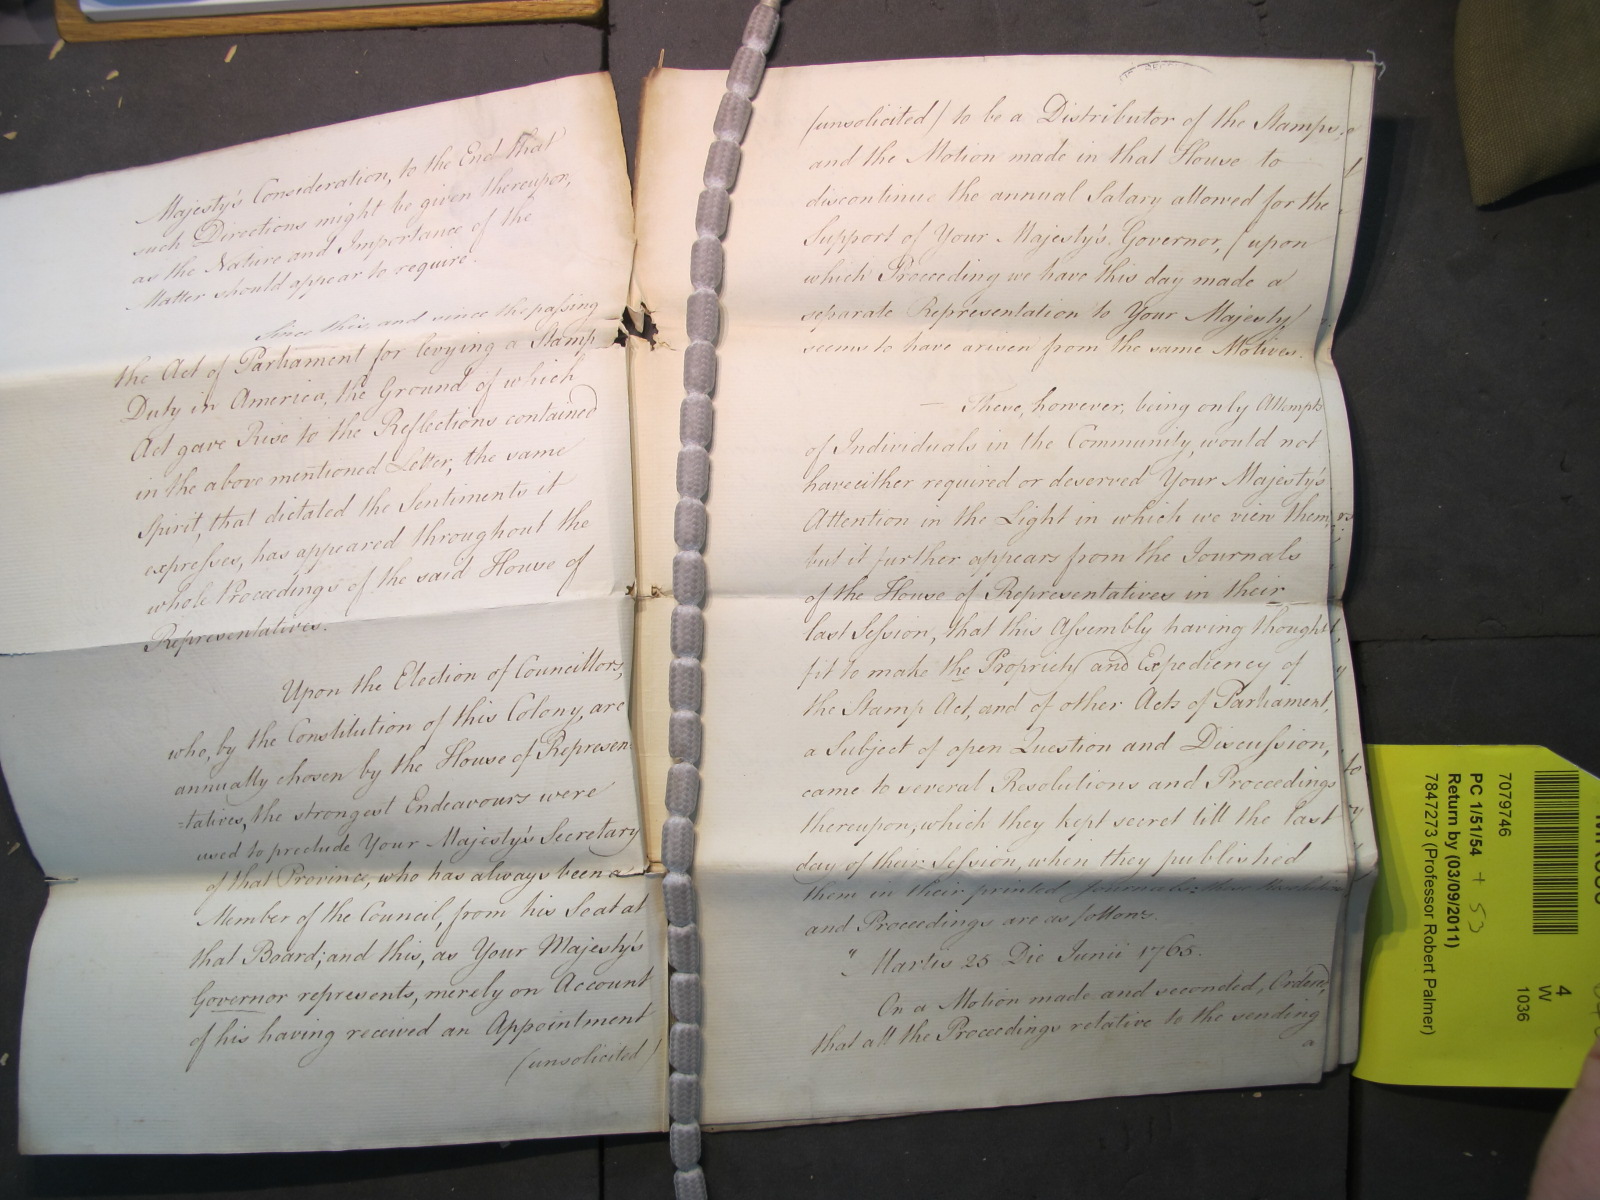 Majesty's Consideration, to the End that
such Directions might be given thereupon,
as the Nature and Importance of the
Matter should appear to require.
Since this, and since the passing
the Act of Parliament for levying a Stamp
Duty in America, the Ground of which
Act gave Rise to the Reflections contained
in the above mentioned Letter, the same
Spirit, that dictated the Sentiments it
expresses, has appeared throughout the
whole Proceedings of the said House of
Representatives.
Upon the Election of Councillors,
who, by the Constitution of this Colony, are
annually chosen by the House of Represen-
-tatives, the strongest Endeavours were
used to preclude Your Majesty's Secretary
of that Province, who has always been a
Member of the Council, from his Seat at
that Board; and this, as Your Majesty's
Governor represents, merely on Account
of his having received an Appointment
(unsolicited)
(unsolicited) to be a Distributor of the Stamps,
and the Motion made in that House to
discontinue the annual Salary allowed for the
Support of Your Majesty's Governor, (upon
which Proceeding we have this day made a
separate Representation to Your Majesty)
seems to have arisen from the same Motives.
— These, however, being only Attempts
of Individuals in the Community, would not
have either required or deserved Your Majesty's
Attention in the Light in which we view them,
but it further appears from the Journals
of the House of Representatives in their
last Session, that this Assembly having thought
fit to make the Propriety and Expediency of
the Stamp Act, and of other Acts of Parliament,
a Subject of open Question and Discussion,
came to several Resolutions and Proceedings
thereupon, which they kept secret till the last
day of their Session, when they published
them in their printed Journals: these Resolutions
and Proceedings are as follows.
" Martis 25 Die Junii 1765.
On a Motion made and seconded, Ordered,
that all the Proceedings relative to the sending
a
7079746
PC 1/51/54 + 53
Return by (03/09/2011)
7847273 (Professor Robert Palmer)
4
W
1036